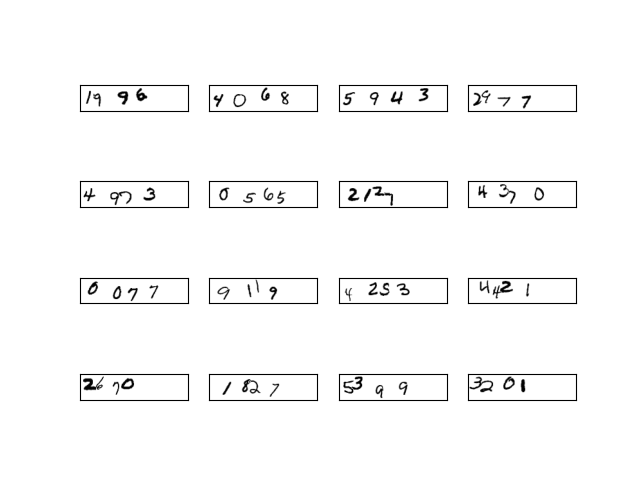 1996 4068 5943 2977
4973 0565 2127 4370
0077 9119 4253 4421
2670 1827 5399 3201